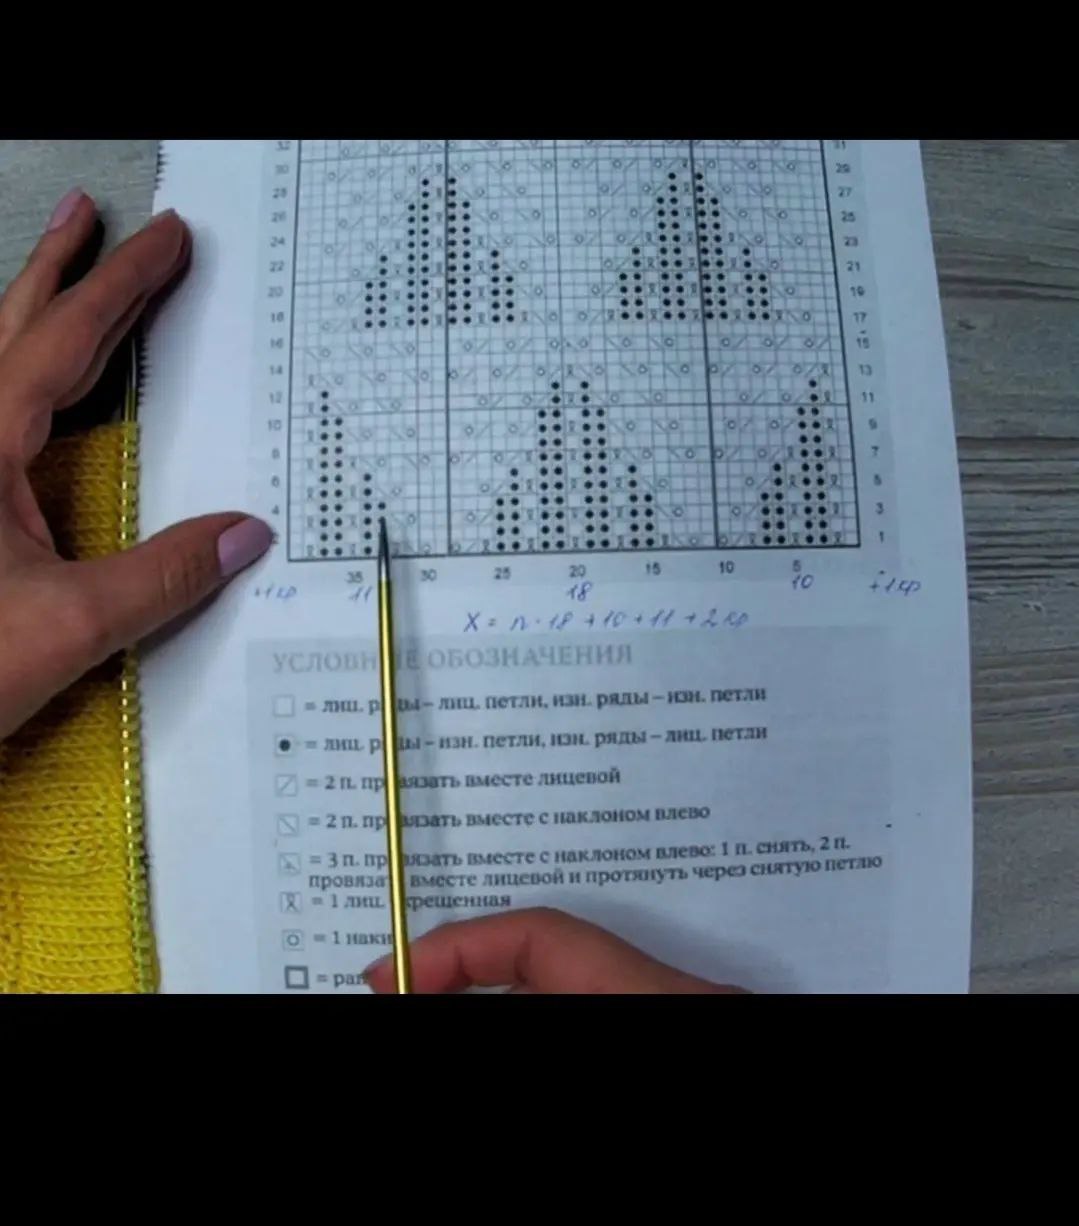 32 31
30 29
28 27
26 25
24 23
22 21
20 19
18 17
16 15
14 13
12 11
10 9
8 7
6 5
4 3
1
35 30 25 20 15 10 5
+1кр 11 18 10 +1кр
X = n·18 +10+11+2кр
УСЛОВН Е ОБОЗНАЧЕНИЯ
= лиц. р ды – лиц. петли, изн. ряды – изн. петли
= лиц. р ды – изн. петли, изн. ряды – лиц. петли
= 2 п. пр вязать вместе лицевой
= 2 п. пр вязать вместе с наклоном влево
= 3 п. пр вязать вместе с наклоном влево: 1 п. снять, 2 п.
провяза вместе лицевой и протянуть через снятую петлю
= 1 лиц. крещенная
= 1 наки
= рап